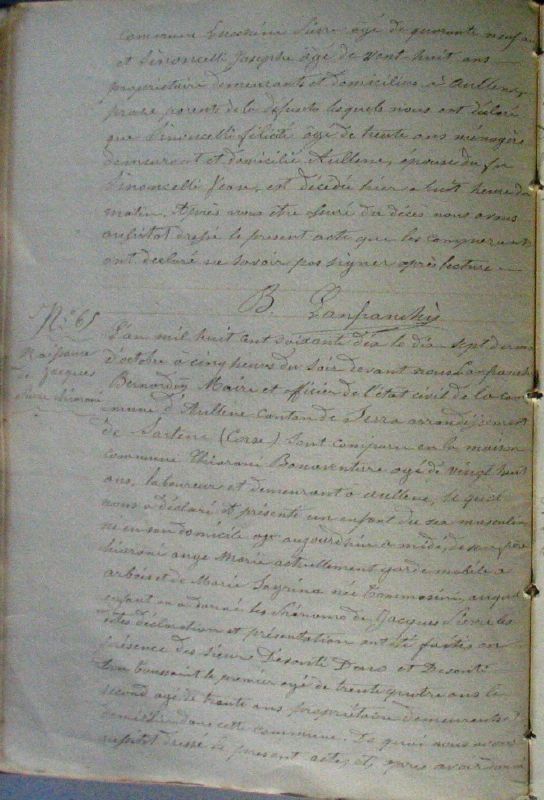 Commune Lucchini Pierre agé de quarante neuf ans
et Simoncelli Josephe agé de vont huit ans
propriétaire demeurants et domiciliés à Aullene,
proxe parents de la defunte lesquels nous ont déclaré
que Simoncelli félicité agé de trente ans ménagère
demeurant et domicilié Aullene, épouse du fu
Simoncelli Jean, est décédée hier a huit heure du
matin. Après nous etre assuré du décès nous avons
aussitot dressé le present acte que les comparants
ont declaré ne savoir pas signer après lecture
B. Lanfranchi
N° 65
Naissance
de Jacques
Pierre
L'an mil huit cent soixante dix le dix sept du mois
d'octobre à cinq heures du soir devant nous Lanfranchi
Bernardin Maire et officier de l'état civil de la com
mune d'Aullene Canton de Serra arrondissement
de Sartene (Corse) Sont comparu en la maison
commune Bonaventure agé de vingt huit
ans, laboureur et demeurant a aullene, le quel
nous a déclaré et présenté un enfant du sex masculin
né en son domicile aujourd'hui a midé, de
ange Marie actuellement garde mobile a
et de Marie née Tommasini, auquel
enfant on a donné les Prénoms de Jacques Pierre les
dites déclaration et présentation ont été faites en
présence des sieur Desanti et Desanti
Toussaint le premier agé de trente quatre ans le
second agé de trente ans propriétaire demeurants
dans cette commune. De quoi nous avons
aussitot dressé le present acte, et, après avoir